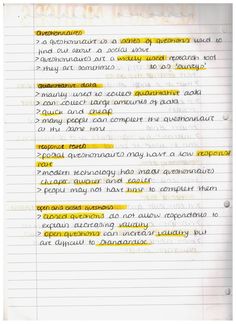 Questionnaires
> a questionnaire is a series of questions used to
find out about a social issue
> questionnaires are a widely used research tool
> they are sometimes to as 'surveys'
Quantitative data
> mainly used to collect quantitative data
> can collect large amounts of data
> quick and cheap
> many people can complete the questionnaire
at the same time
response rates
> postal questionnaires may have a low response
rate
> modern technology has made questionnaires
cheaper quicker and easier
> people may not have time to complete them
open and closed questions
> closed questions do not allow respondents to
explain decreasing validity
> open questions can increase validity but
are difficult to standardise